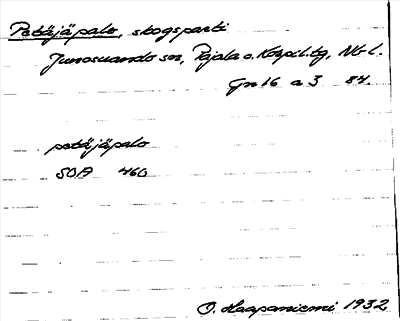 Petäjäpalo, skogsparti
Junosuando sn, Pajala o. Korpil. tg, Nb. l.
Gn 16 a 3 84.
petäjäpalo
SOA 460
O. Haapaniemi 1932